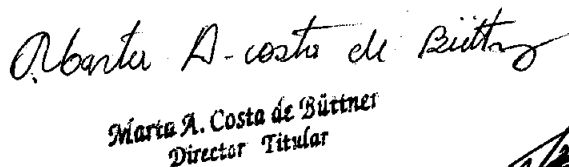 Marta A. Costa de Büttner
Marta A. Costa de Büttner
Director Titular